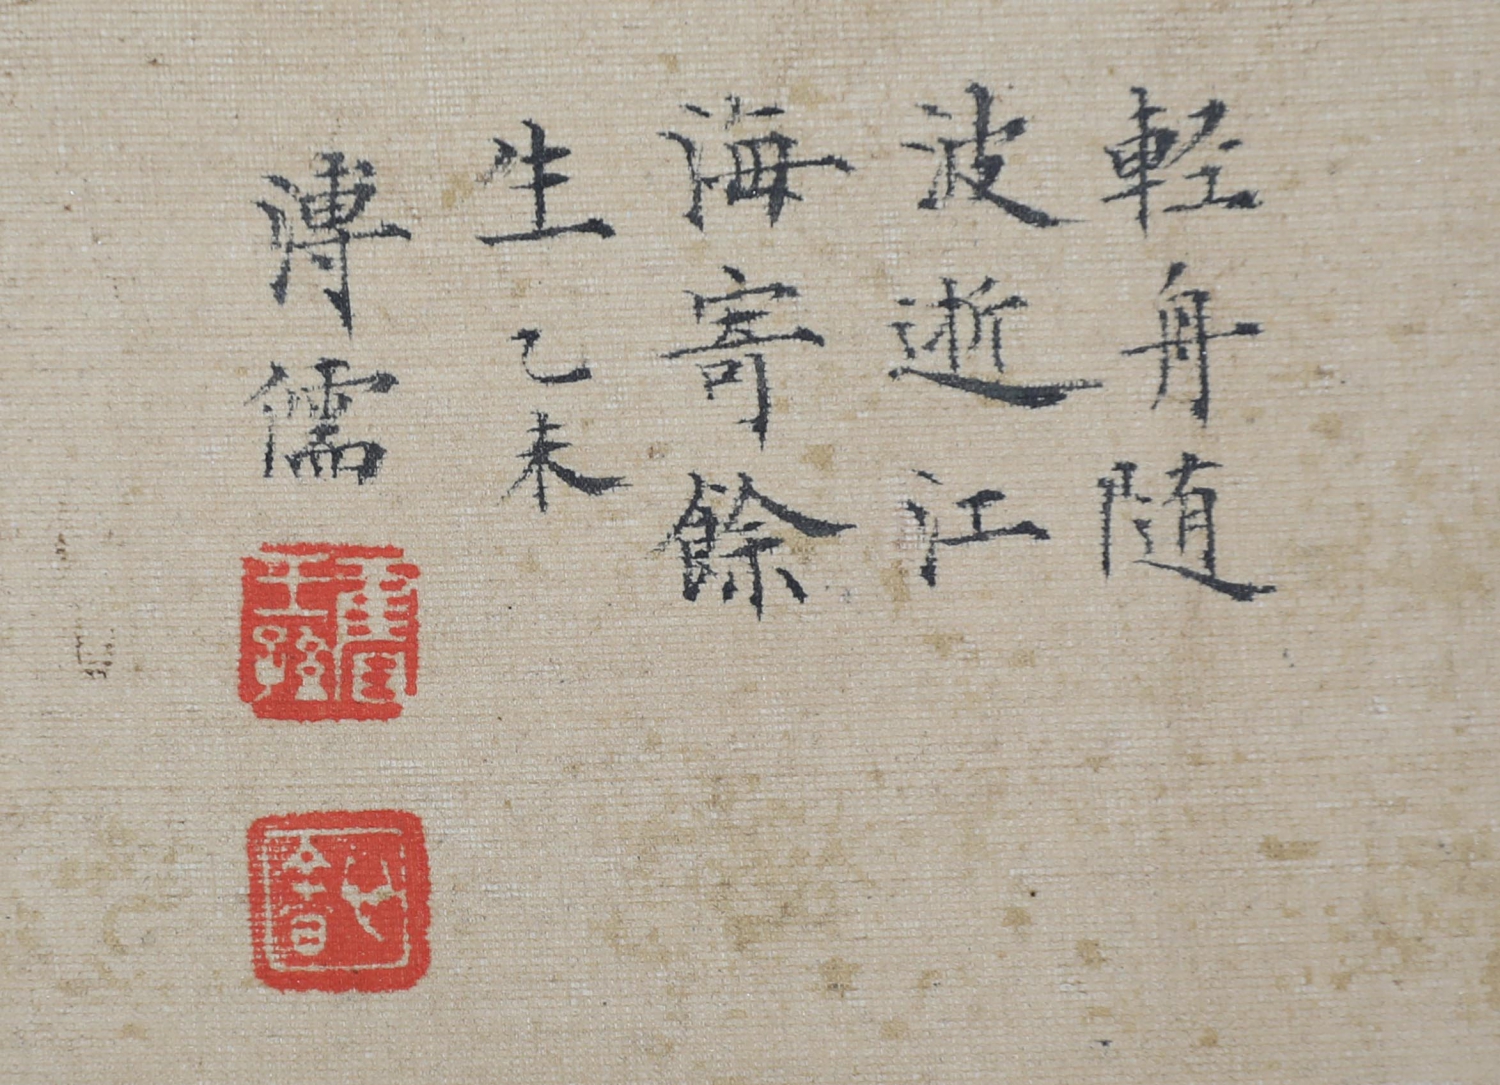 軽舟随
波逝江
海寄餘
生乙未
溥儒